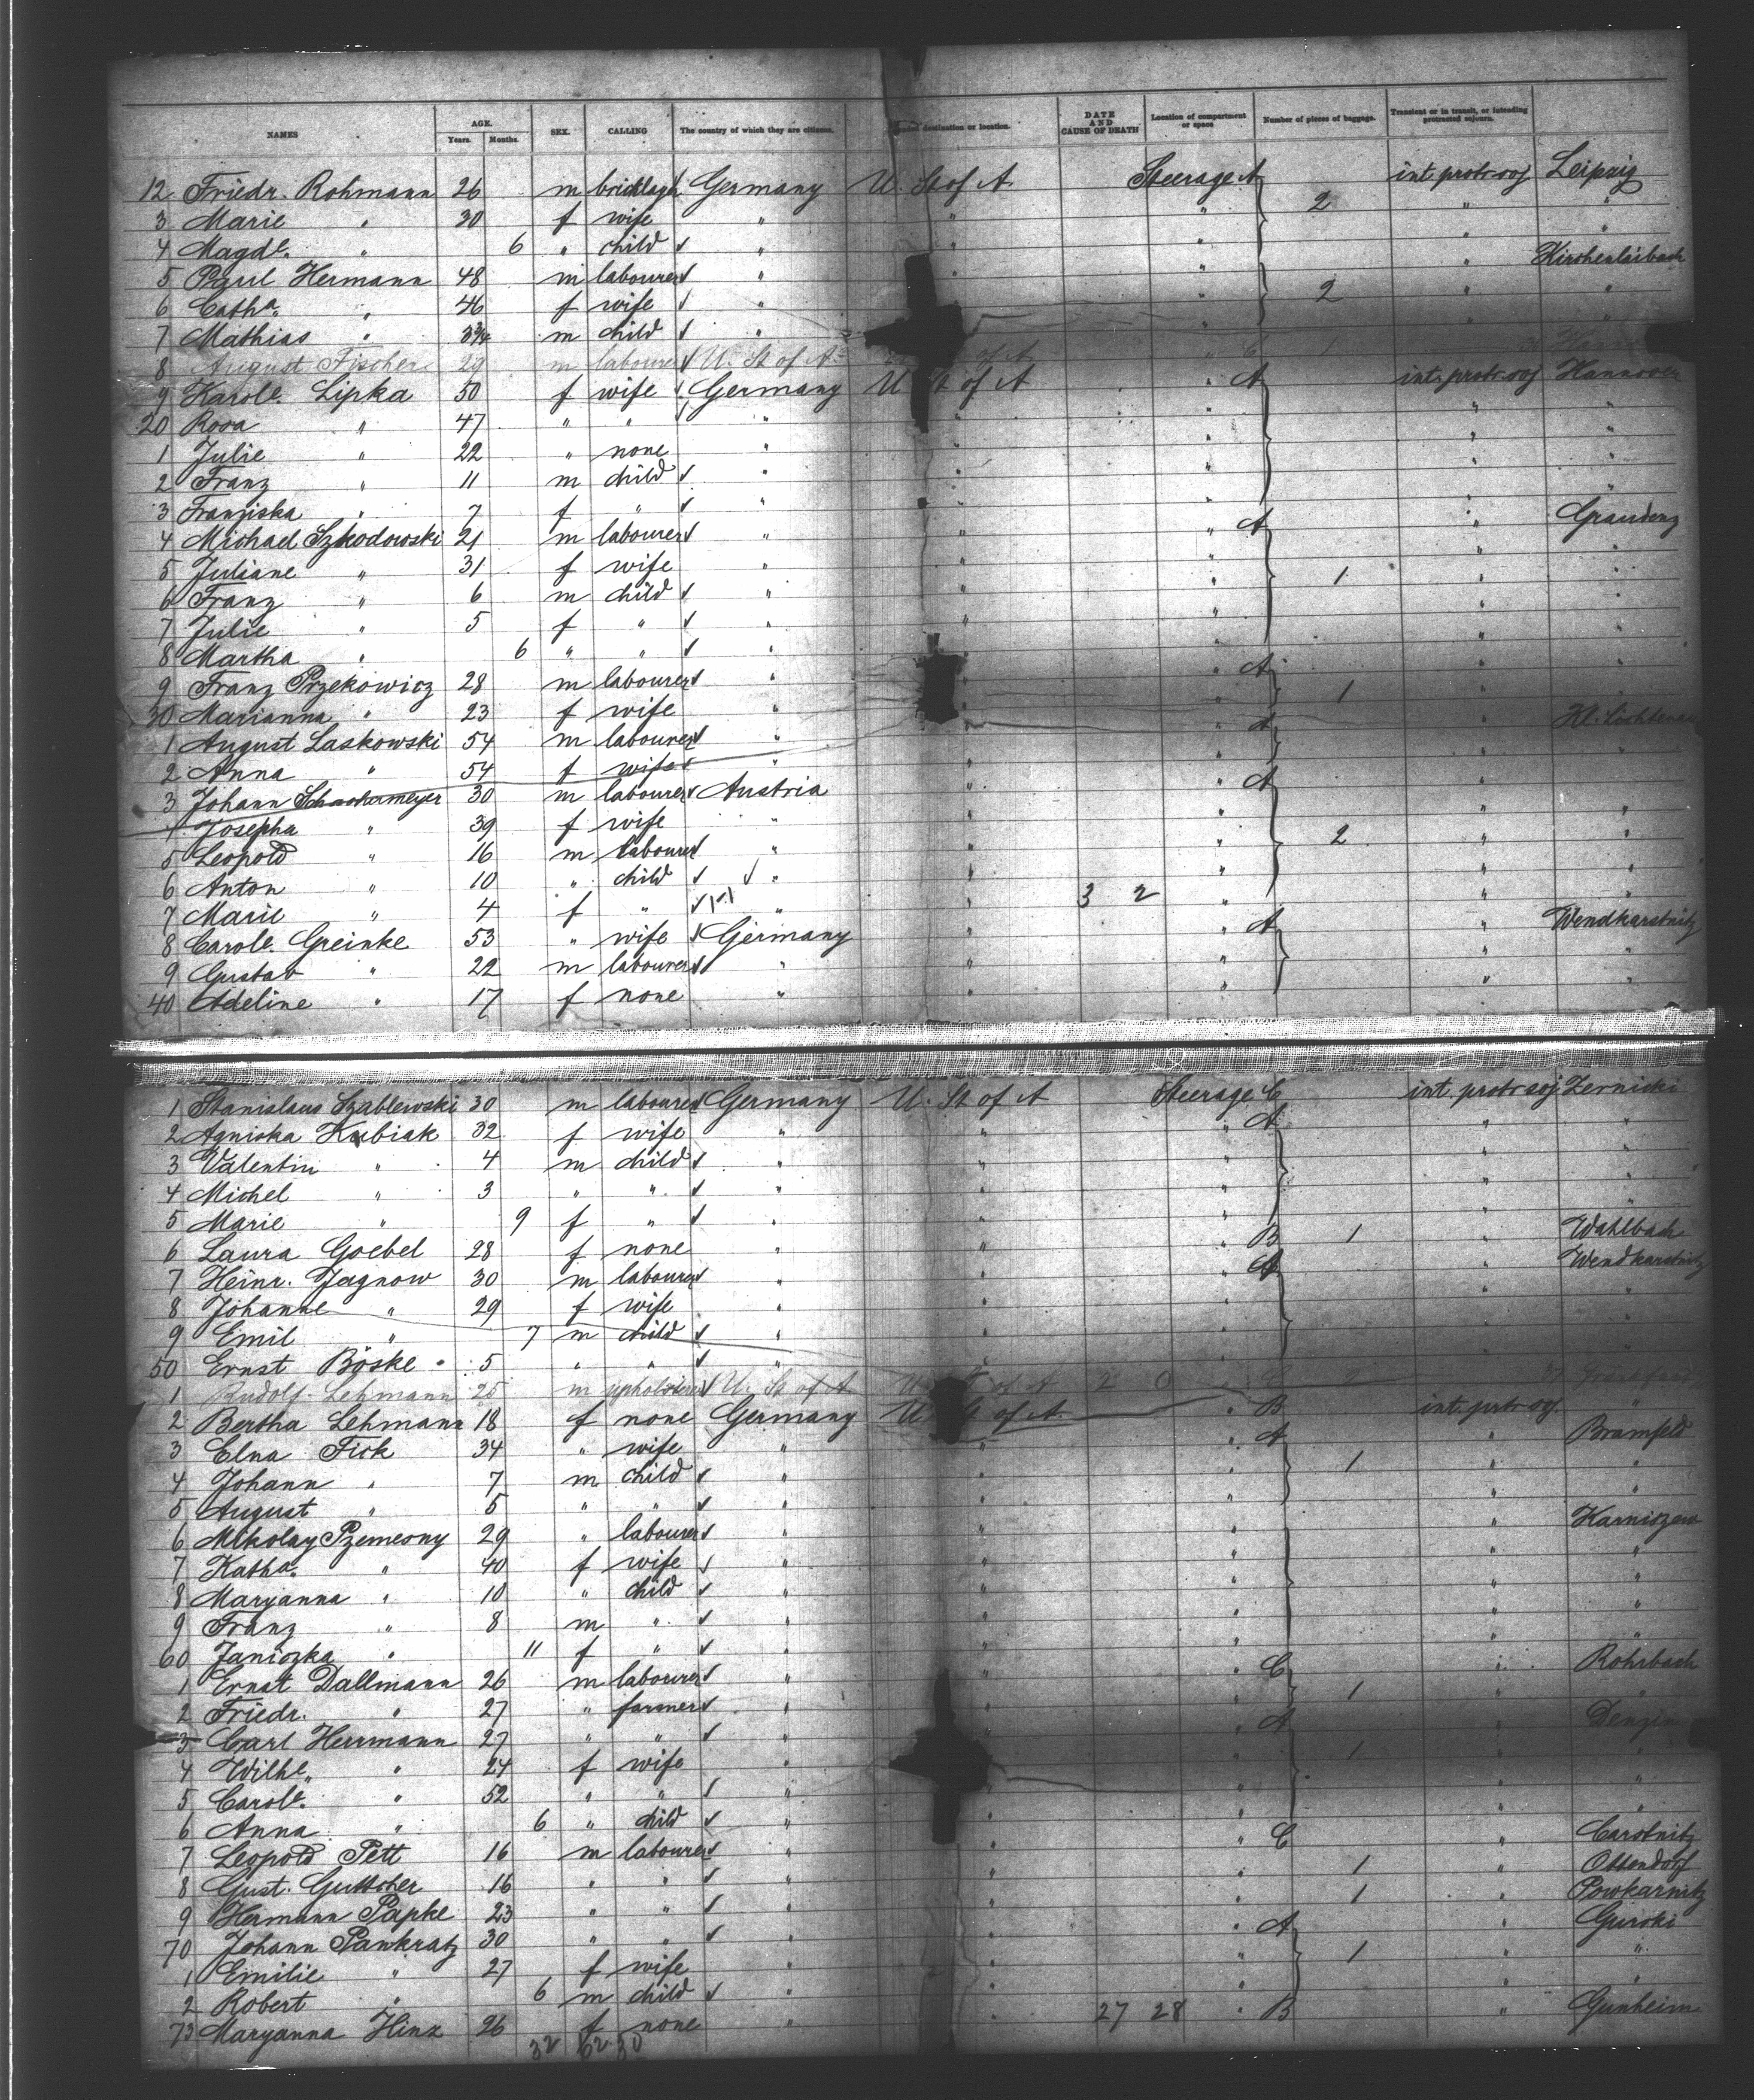 NAMES AGE. Years. Months. SEX. CALLING The country of which they are citizens. destination or location. DATE AND CAUSE OF DEATH Location of compartment or space Number of pieces of baggage. Transient or in transit, or intending protracted sojourn.
12 Friedr. Rohmann 26 m Germany U. St of A Steerage A 2 int. protr. soj Leipzig
3 Marie " 30 f wife " " " " "
4 Magdе. " 6 " child " " " " "
5 Paul Hermann 48 m labourer " " " 2 "
6 Catha. " 46 f wife " " " " "
7 Mathias " 3¾ m child " " "
8 August Fischer 29 m labourer U. St of A of A C
9 Karole. Lipka 50 f wife Germany U St of A " A int. protr. soj Hannover
20 Rosa " 47 " " " " " " "
1 Julie " 22 " none " " " " "
2 Franz " 11 m child " " " " "
3 Franziska " 7 f " " " " " "
4 Michael Szkodowski 21 m labourer " " " A 1 " Graudenz
5 Juliane " 31 f wife " " " " "
6 Franz " 6 m child " " " " "
7 Julie " 5 f " " " " " "
8 Martha " 6 " " " " " " "
9 Franz Przekowicz 28 m labourer " " " A 1 " "
30 Marianna " 23 f wife " " " " "
1 August Laskowski 54 m labourer " " " A "
2 Anna " 54 f wife " " " " "
3 Johann Schachermeyer 30 m labourer Austria " " A
4 Josepha " 39 f wife " " " 2 " "
5 Leopold " 16 m labourer " " " " "
6 Anton " 10 " child " " " " "
7 Marie " 4 f " " " 3 2 " " "
8 Carole. Greinke 53 " wife Germany " " A " Wendkarstnitz
9 Gustav " 22 m labourer " " " " "
40 Adeline " 17 f none " " " " "
1 Stanislaus Szablewski 30 m labourer Germany U. St of A Steerage C int. protr soj Zernicki
2 Agniska Kubiak 32 f wife " " " A " "
3 Valentin " 4 m child " " " " "
4 Michel " 3 " " " " " " "
5 Marie " 9 f " " " " " "
6 Laura Goebel 28 f none " " " B 1 " Wahlbach
7 Heinr. Jagnow 30 m labourer " " " A " Wendkarstnitz
8 Johanne " 29 f wife " " " " "
9 Emil " 7 m child " " " " "
50 Ernst Böske 5 " " " " " " "
1 Rudolf Lehmann 25 m upholsterer U. St of A of A
2 Bertha Lehmann 18 f none Germany U St of A " B int. protr soj. "
3 Elna Fick 34 " wife " " " A 1 " Bramfeld
4 Johann " 7 m child " " " " "
5 August " 5 " " " " " " "
6 Mikolay Pzemesny 29 " labourer " " " "
7 Katha. " 40 f wife " " " " "
8 Maryanna " 10 " child " " " " "
9 Franz " 8 m " " " " " "
60 Janiczka " 11 f " " " " " "
1 Ernst Dallmann 26 m labourer " " " C 1 " Rohrbach
2 Friedr. " 27 " farmer " " " " "
3 Carl Herrmann 27 " " " " " A 1 "
4 Wilhe. " 24 f wife " " " " "
5 Carole. " 52 " " " " " " "
6 Anna " 6 " child " " " " "
7 Leopold Pett 16 m labourer " " " C " Carstnitz
8 Gust. Guttscher 16 " " " " " 1 " Ottendorf
9 Hermann Papke 23 " " " " " 1 " Powkarnitz
70 Johann Pankratz 30 " " " " " A 1 " Gurski
1 Emilie " 27 f wife " " " " "
2 Robert " 6 m child " " " " "
73 Maryanna Hinz 26 f none " " 27 28 " B " Gunheim
32 62 30